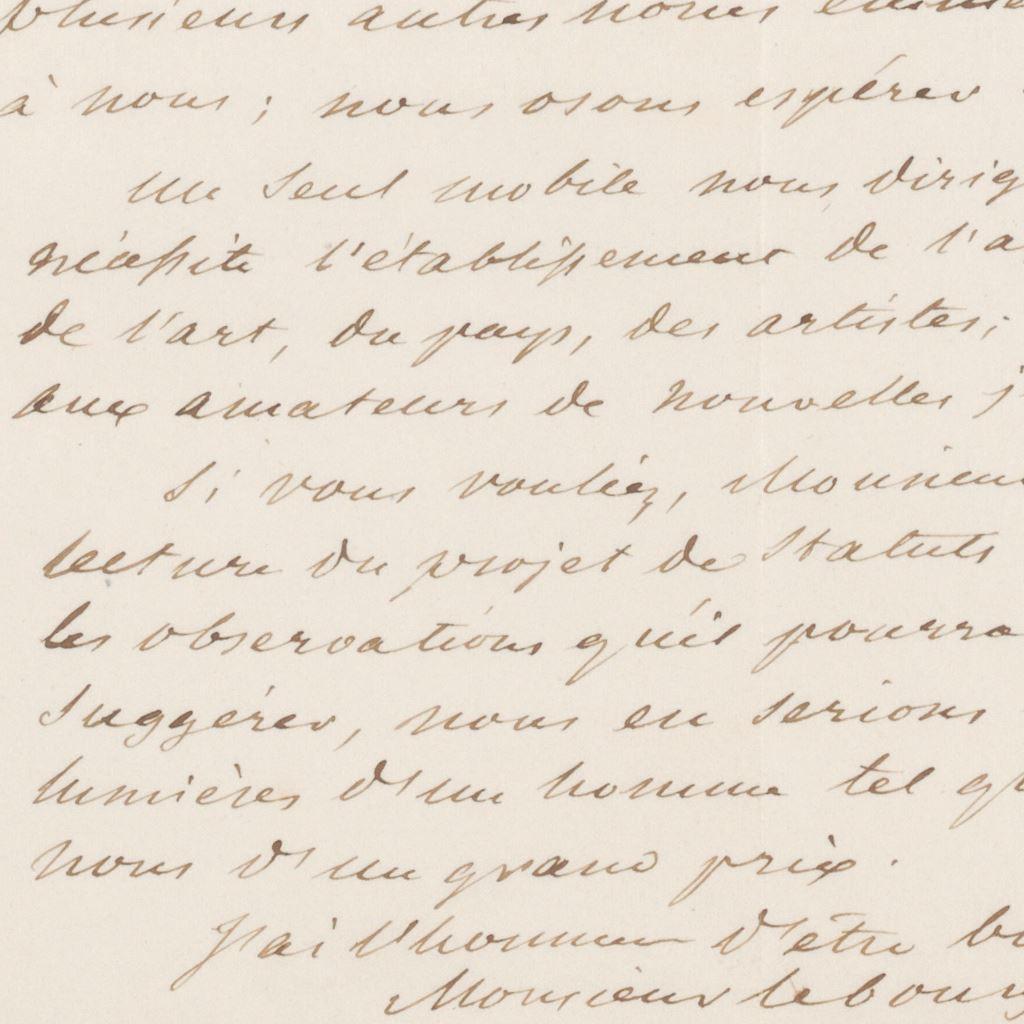 plusieurs autres noms émine
à nous ; nous osons espérer
un seul mobile nous dirig
nécessite l'établissement de l'a
de l'art, du pays, des artistes;
aux amateurs de nouvelles j
Si vous vouliez, Monsieu
lecture du projet de Statuts
les observations qu'il pourra
suggérer, nous en serions
lumières d'un homme tel qu
nous d'un grand prix.
J'ai l'honneur d'être
Monsieur le bourg